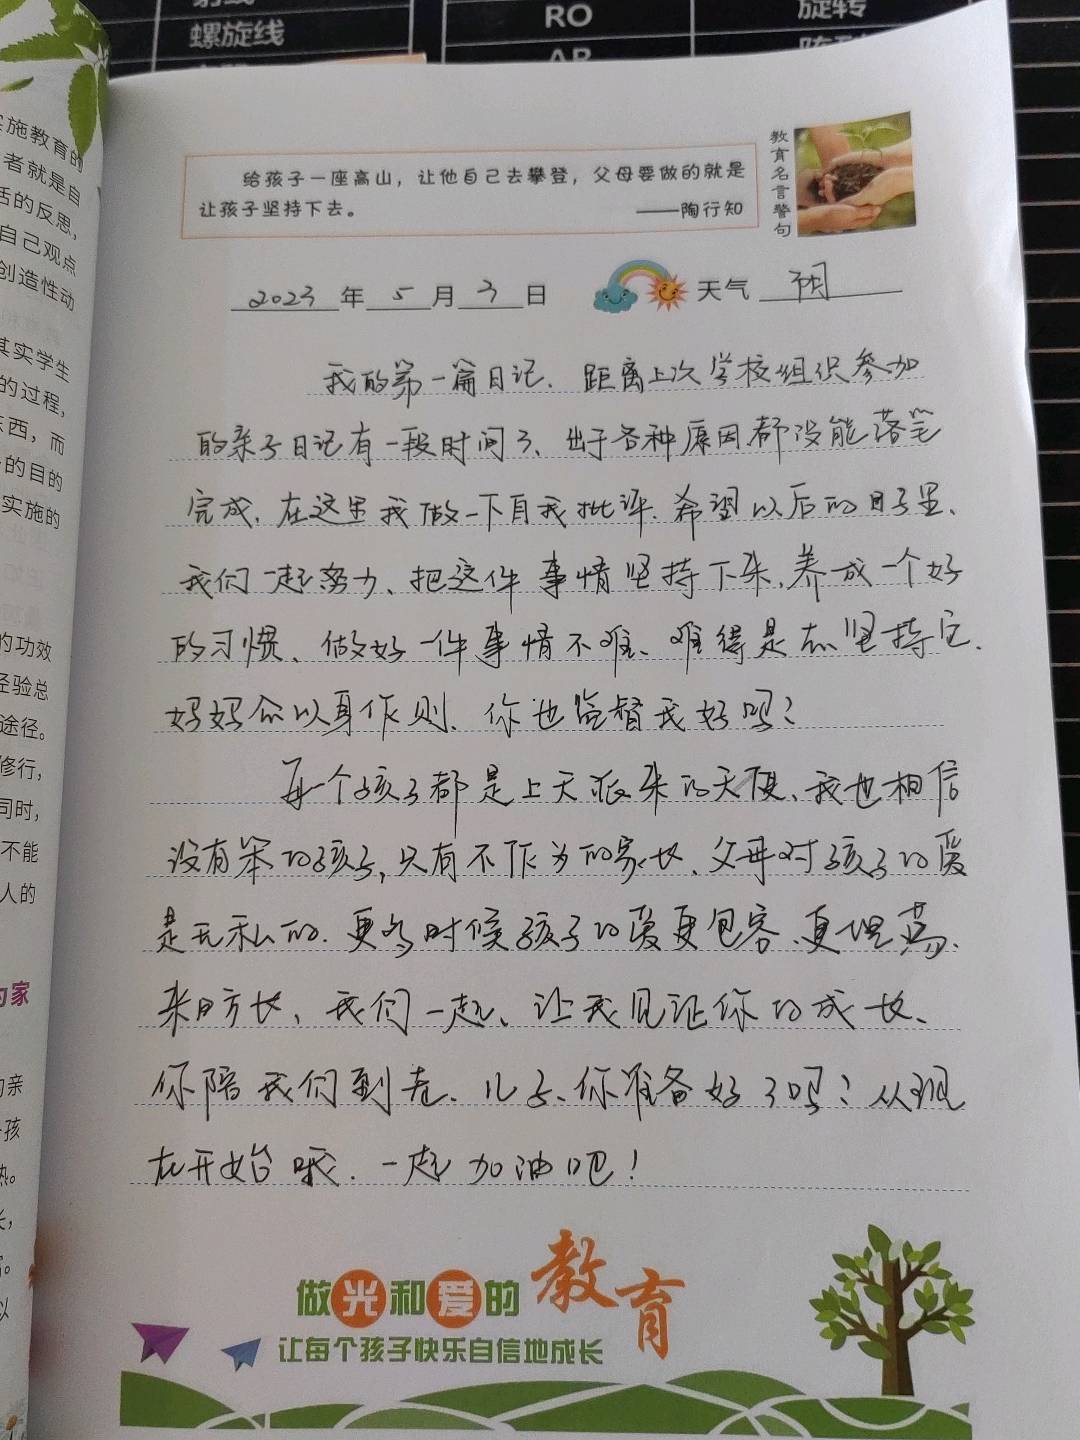 螺旋线
RO
旋转
AR
实施教育的
者就是自
活的反思,
自己观点
创造性动
其实学生
的过程,
东西，而
的目的
实施的
的功效
经验总
途径。
修行,
同时,
不能
人的
家
亲
孩
给孩子一座高山，让他自己去攀登，父母要做的就是
让孩子坚持下去。
——陶行知
教育名言警句
2023年5月3日 天气 阴
我的第一篇日记. 距离上次学校组织参加
的亲子日记有一段时间了、出于各种原因都没能落笔
完成. 在这里我做一下自我批评. 希望以后的日子里、
我们一起努力、把这件事情坚持下来, 养成一个好
的习惯、做好一件事情不难、难得是在坚持它.
妈妈会以身作则. 你也监督我好吗?
每一个孩子都是上天派来的天使、我也相信
没有笨的孩子, 只有不作为的家长. 父母对孩子的爱
是无私的. 更多时候孩子的爱更包容、更坦荡.
来日方长、我们一起、让我见证你的成长、
你陪我们到老. 儿子、你准备好了吗? 从现
在开始哦. 一起加油吧!
做光和爱的教育
让每个孩子快乐自信地成长